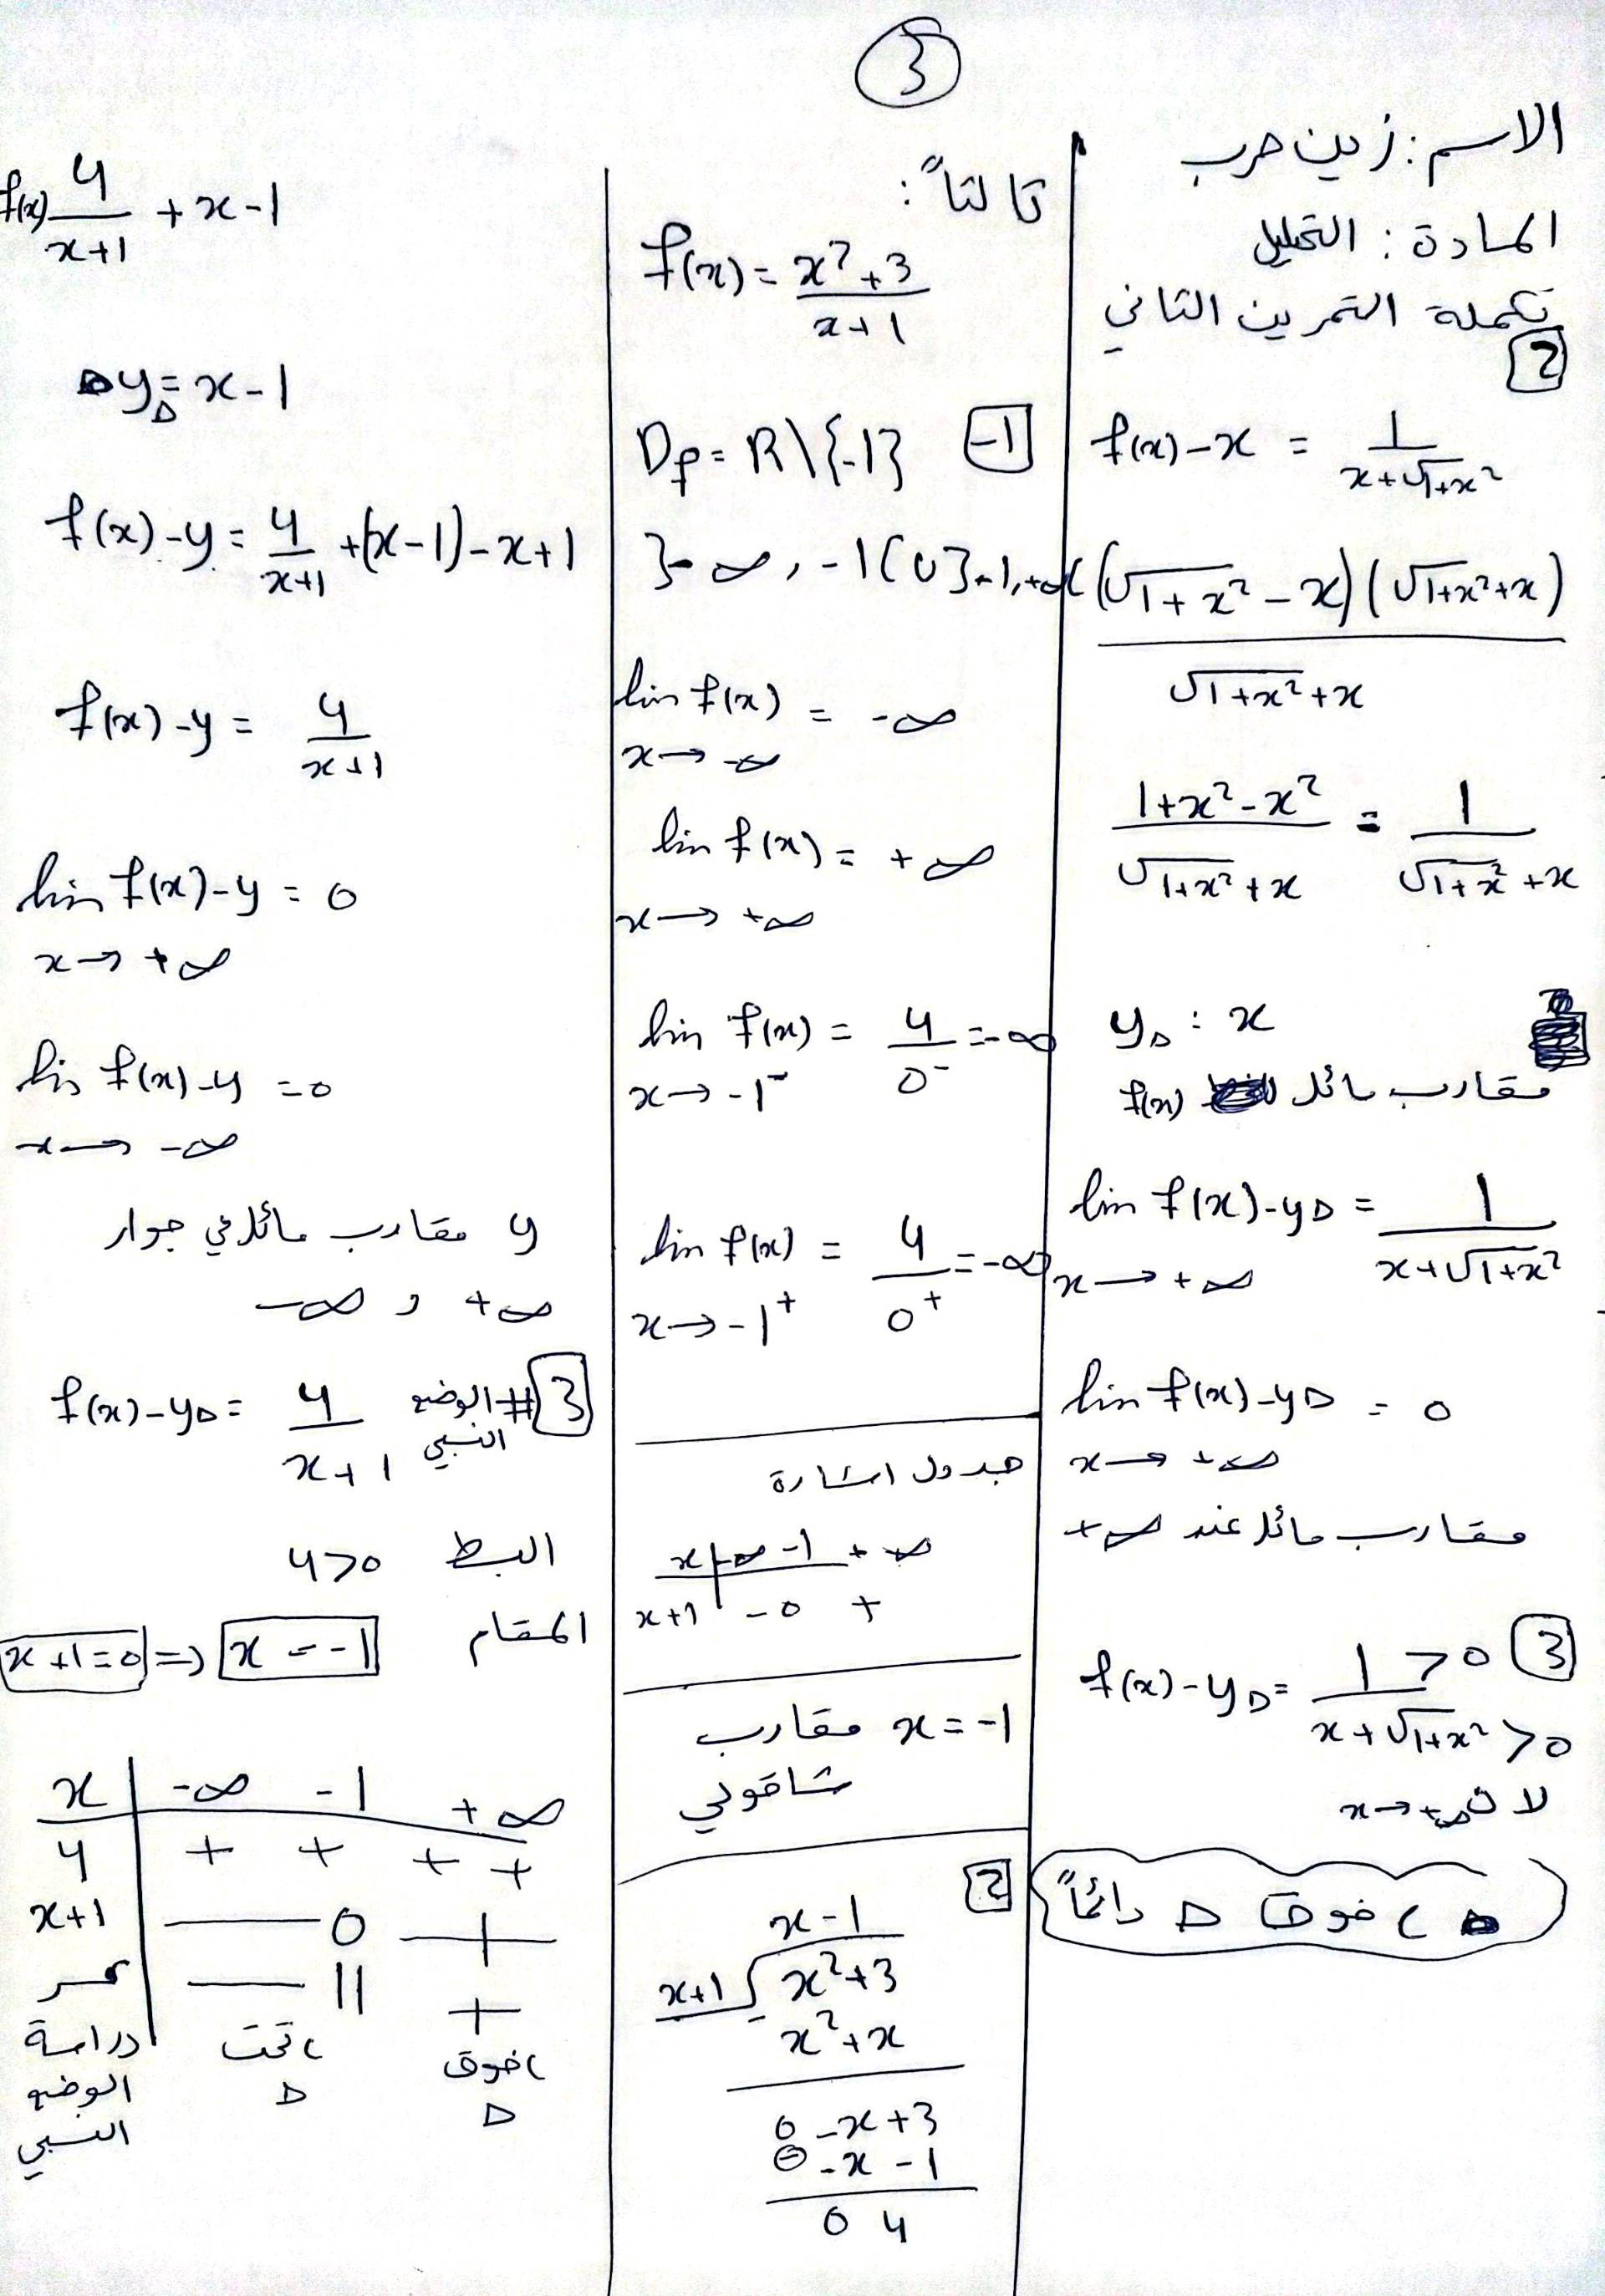 3
الاسم: زين حرب
المادة: التحليل
تكملة التمرين الثاني
2
f(x) - x = 1 / (x+√1+x²)
(√1+x² - x)(√1+x² + x) / (√1+x² + x)
(1+x²-x²) / (√1+x² + x) = 1 / (√1+x² + x)
yΔ : x
مقارب مائل f(x)
lim f(x) - yΔ = 1 / (x+√1+x²)
x → +∞
lim f(x) - yΔ = 0
x → +∞
مقارب مائل عند +∞
3
f(x) - yΔ = 1 > 0 / (x+√1+x² > 0)
لان x → +∞
C فوق Δ دائماً
ثالثاً:
f(x) = (x²+3) / (x+1)
Df = R\{-1} -1
]-∞, -1[ U ]-1, +∞[
lim f(x) = -∞
x → -∞
lim f(x) = +∞
x → +∞
lim f(x) = 4 / 0⁻ = -∞
x → -1⁻
lim f(x) = 4 / 0⁺ = -∞
x → -1⁺
جدول اشارة
x | -∞ -1 +∞
x+1 | - 0 +
x = -1 مقارب
شاقولي
2
x-1
x+1 √ x²+3
- x²+x
0 -x+3
⊖ -x -1
0 4
f(x) 4 / (x+1) + x - 1
yΔ = x - 1
f(x) - y = 4 / (x+1) + (x-1) - x + 1
f(x) - y = 4 / (x+1)
lim f(x) - y = 0
x → +∞
lim f(x) - y = 0
x → -∞
y مقارب مائل في جوار
+∞ و -∞
3 # الوضع النسبي f(x) - yΔ = 4 / (x+1)
البسط 4>0
المقام x+1=0 ⇒ x = -1
x | -∞ -1 +∞
4 | + + + +
x+1 | — 0 +
كسر | — || +
دراسة الوضع النسبي | C تحت Δ C فوق Δ